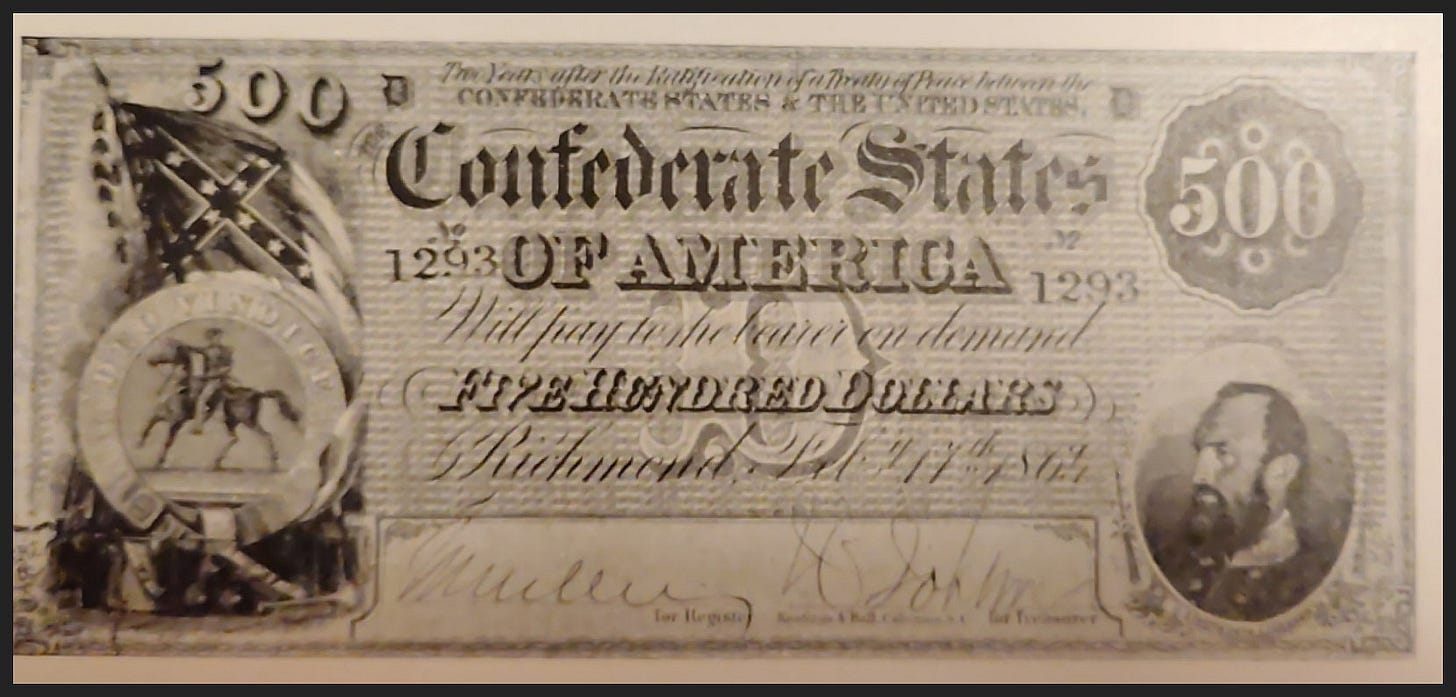 500
D
Two Years after the Ratification of a Treaty of Peace between the
CONFEDERATE STATES & THE UNITED STATES,
D
THE
Confederate States
500
No
1293
OF AMERICA
No
1293
Will pay to the bearer on demand
FIVE HUNDRED DOLLARS
Richmond, Feby 17th 1864
DEO VINDICE
for Register
for Treasurer